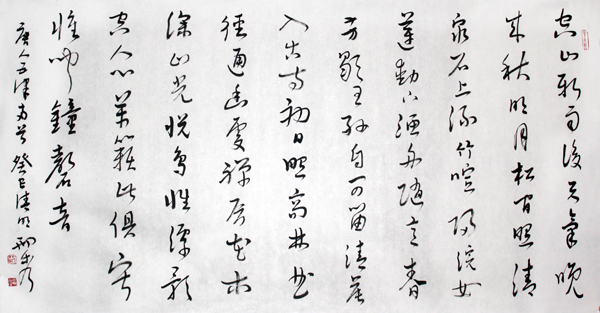 空山新雨後天氣晚
來秋明月松間照清
泉石上流竹喧歸浣女
蓮動下漁舟隨意春
芳歇王孫自可留清晨
入古寺初日照高林曲
徑通幽處禪房花木
深山光悅鳥性潭影
空人心萬籟此俱寂
惟聞鐘磬音
唐人五律两首癸巳清明